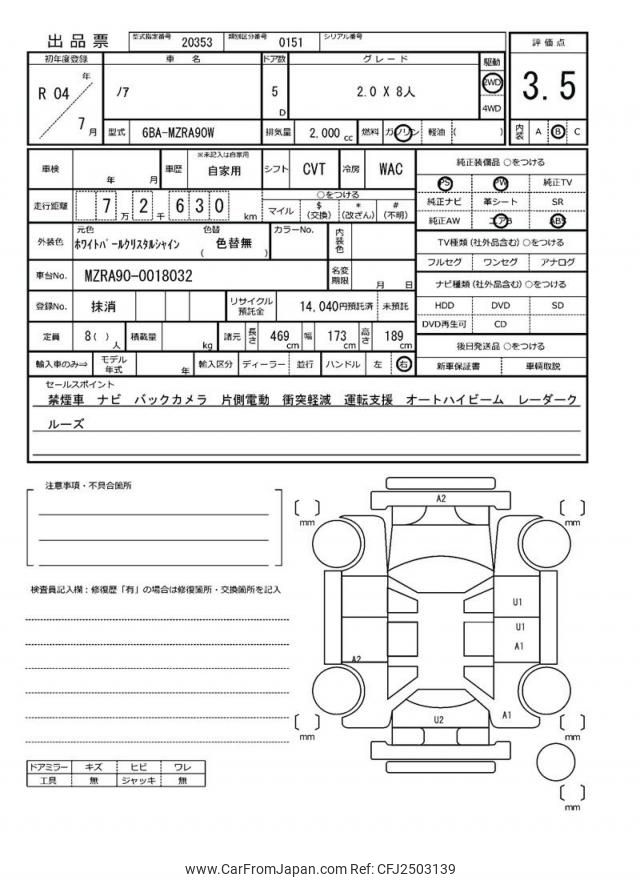 出品票 型式指定番号 20353 類別区分番号 0151 シリアル番号
初年度登録 車名 ドア数 グレード 駆動 評価点
R 04 年 7 月 ノア 5 D 2.0 X 8人 2WD 4WD 3.5
型式 6BA-MZRA90W 排気量 2,000 cc 燃料 ガソリン 軽油 ( ) 内装 A B C
車検 年 月 車歴 ※未記入は自家用 自家用 シフト CVT 冷房 WAC 純正装備品 ○をつける
PS PW 純正TV
走行距離 7 万 2 千 6 3 0 km ○をつける 純正ナビ 革シート SR
マイル $ (交換) * (改ざん) # (不明) 純正AW エアB ABS
外装色 元色 ホワイトパールクリスタルシャイン 色替 ( 色替無 ) カラーNo. 内装色 TV種類 (社外品含む) ○をつける
フルセグ ワンセグ アナログ
車台No. MZRA90-0018032 名変期限 月 日 ナビ種類 (社外品含む) ○をつける
登録No. 抹消 リサイクル預託金 14,040円預託済 未預託 HDD DVD SD
DVD再生可 CD
定員 8( ) 人 積載量 kg 諸元 長さ 469 cm 幅 173 cm 高さ 189 cm 後日発送品 ○をつける
輸入車のみ⇒ モデル年式 年 輸入区分 ディーラー 並行 ハンドル 左 右 新車保証書 車輌取説
セールスポイント
禁煙車 ナビ バックカメラ 片側電動 衝突軽減 運転支援 オートハイビーム レーダーク
ルーズ
注意事項・不具合箇所
検査員記入欄：修復歴「有」の場合は修復箇所・交換箇所を記入
A2
mm
mm
U1
U1
A1
A2
U2
A1
mm
mm
mm
ドアミラー キズ ヒビ ワレ
工具 無 ジャッキ 無
www.CarFromJapan.com Ref: CFJ2503139